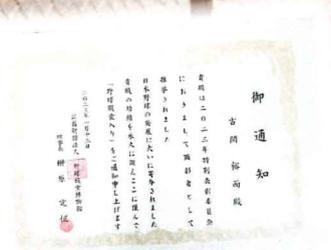 御通知
古関裕而殿
貴殿は二〇二三年特別表彰委員会
におきまして顕彰者として
推挙されました
日本野球の発展に大いに寄与されました
貴殿の功績を永久に讃えここに謹んで
「野球殿堂入り」をご通知申し上げます
二〇二三年一月十三日
公益財団法人 野球殿堂博物館
理事長 榊原定征